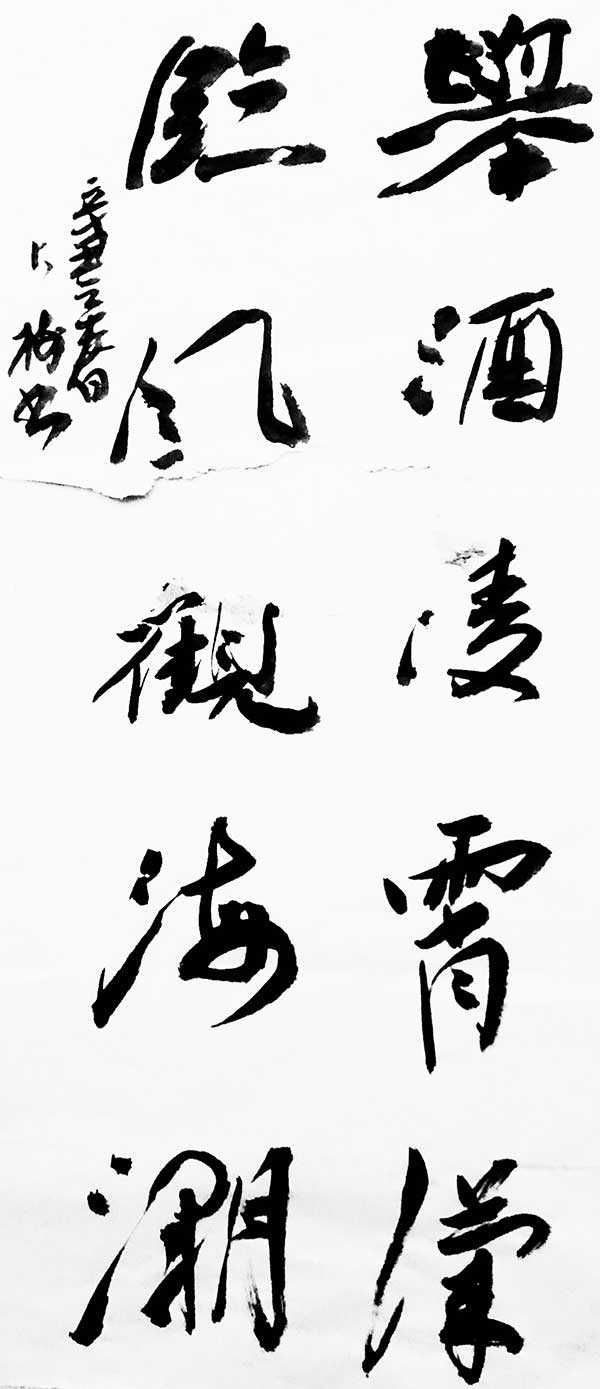 舉酒凌霄漢
臨風觀海潮
辛丑春
梅書